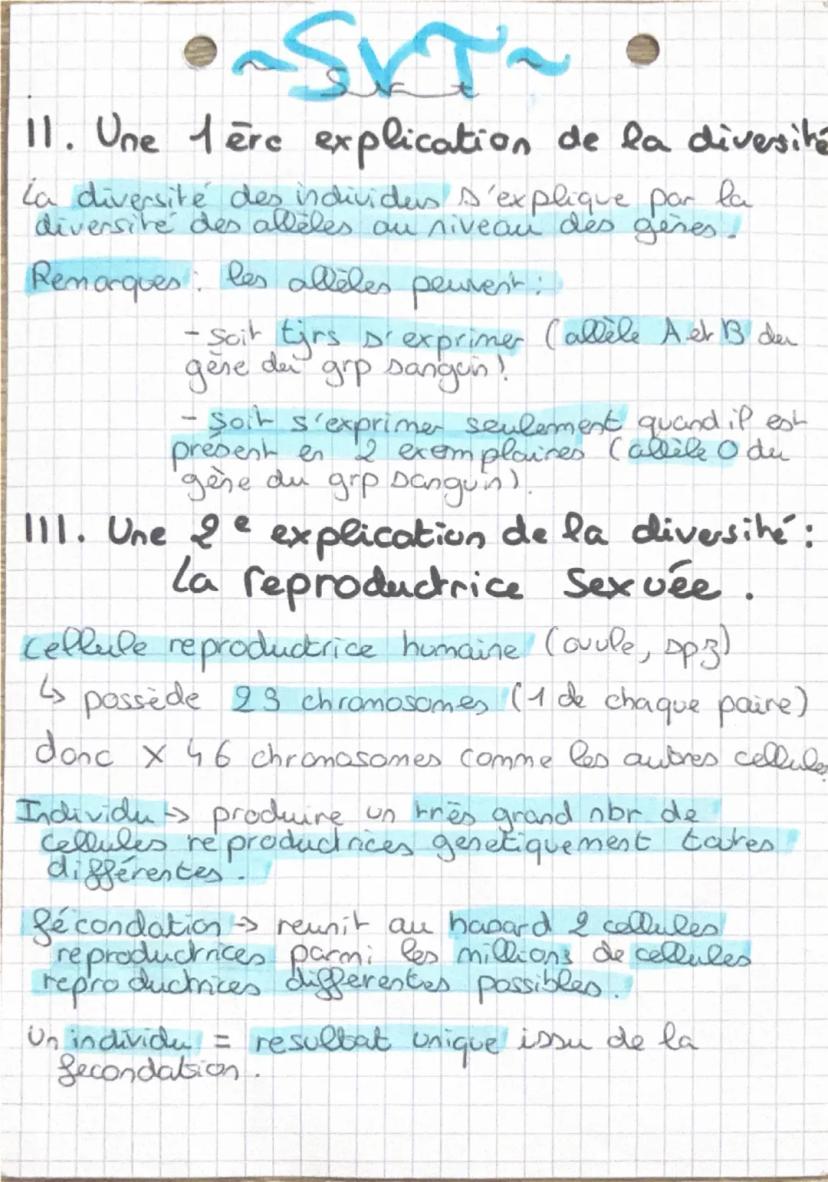 ~SVT~
Svt
II. Une 1ère explication de la diversité
La diversité des individus s'explique par la
diversité des allèles au niveau des gènes.
Remarques : les allèles peuvent :
- soit tjrs s'exprimer (allèle A et B du
gène du grp sanguin!
- soit s'exprimer seulement quand il est
présent en 2 exemplaires (allèle O du
gène du grp sanguin).
III. Une 2e explication de la diversité :
La reproductrice sexuée.
Cellule reproductrice humaine (ovule, spz)
↳ possède 23 chromosomes (1 de chaque paire)
donc X 46 chromosomes comme les autres cellules
Individu → produire un très grand nbr de
cellules reproductrices genetiquement toutes
différentes.
fécondation → reunit au hasard 2 cellules
reproductrices parmi les millions de cellules
reproductrices differentes possibles.
Un individu = resultat unique issu de la
fecondation.